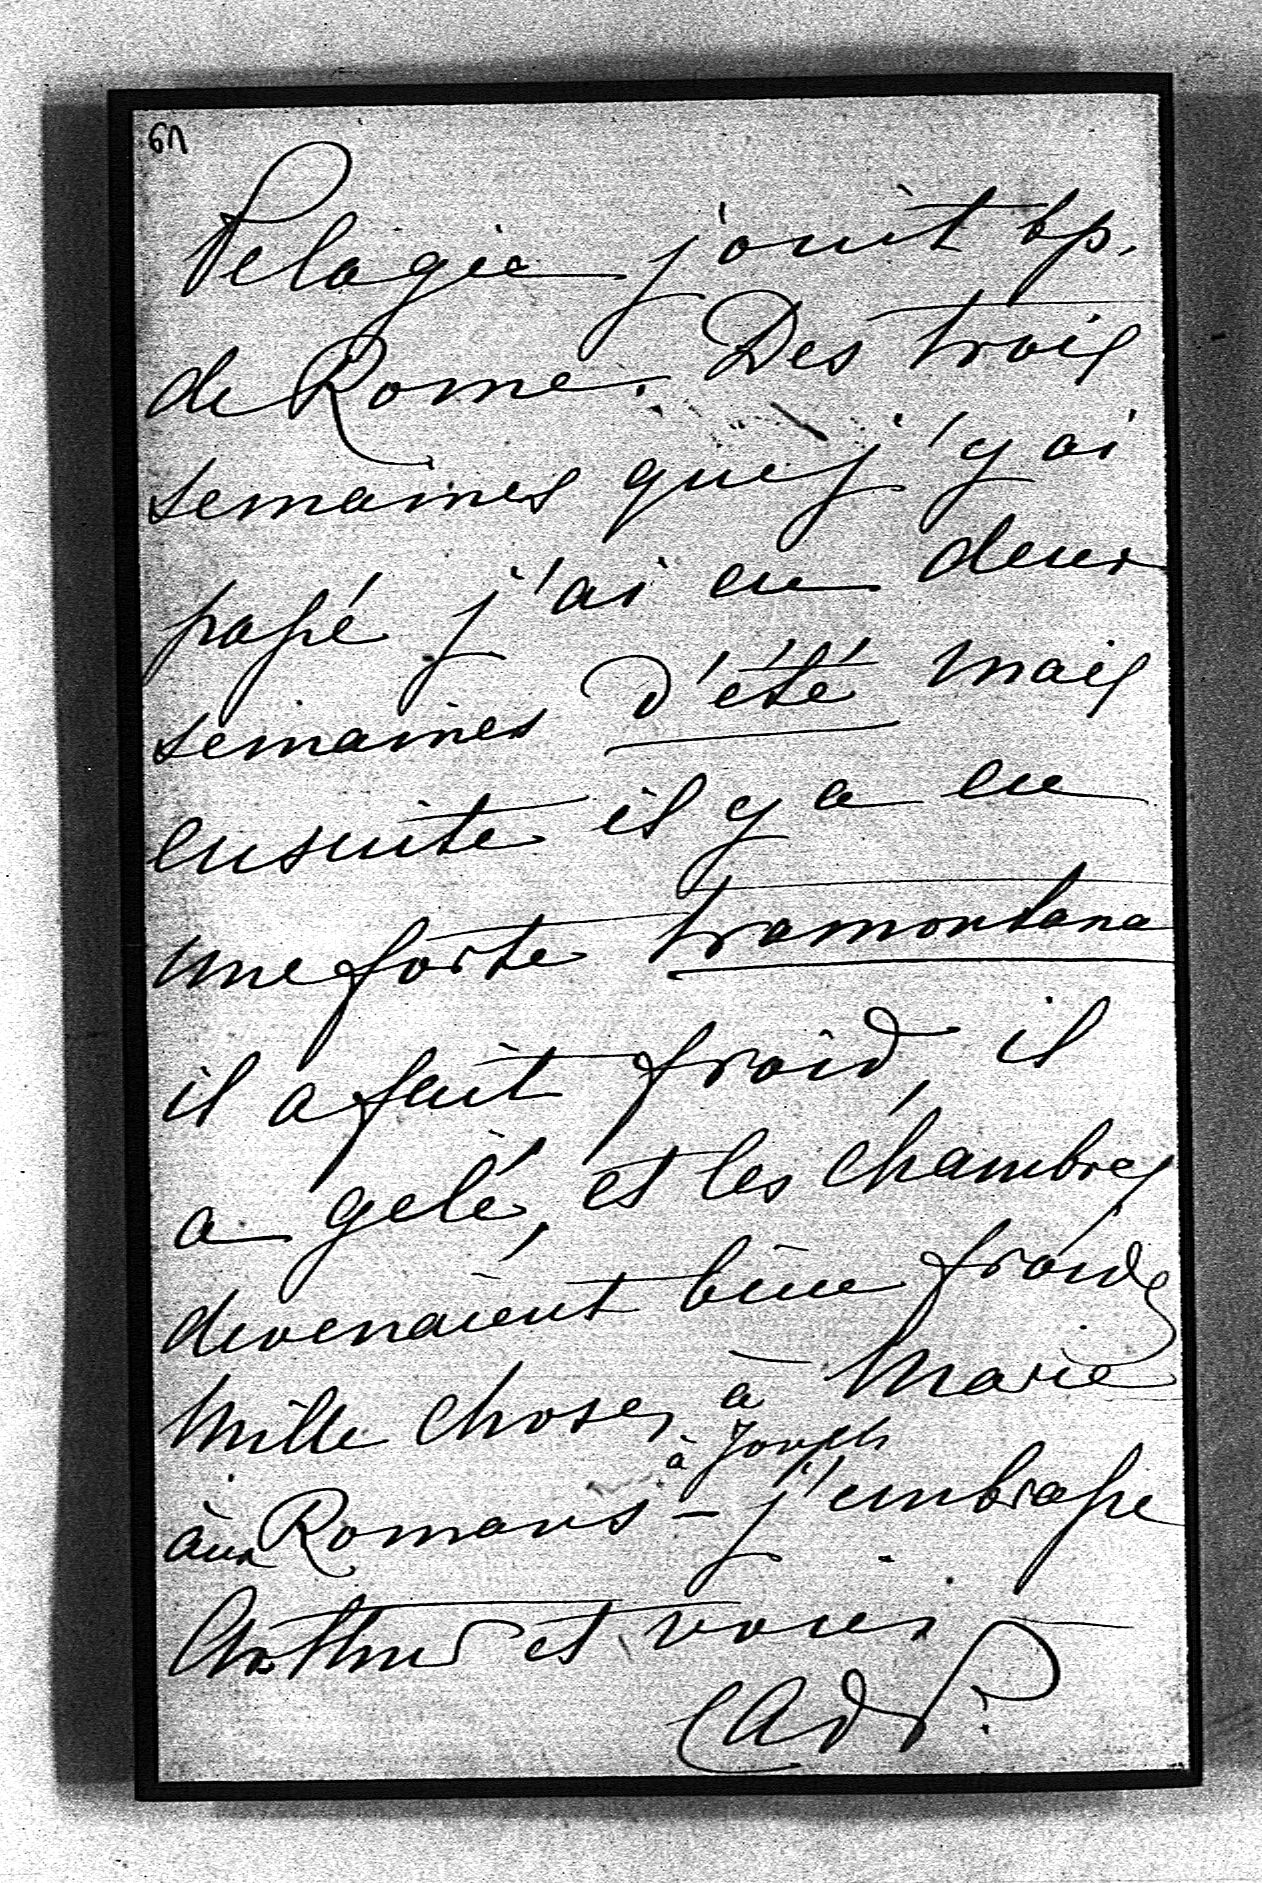 Pelagie jouit bp.
de Rome. Des trois
semaines que j'y ai
passé j'ai eu deux
semaines d'été mais
ensuite il y a eu
une forte tramontana
il a fait froid, il
a gelé, et les chambres
devenaient bien froides
Mille choses à Marie
à Joseph
aux Romans - j'embrasse
Arthur et vous
CAdP.